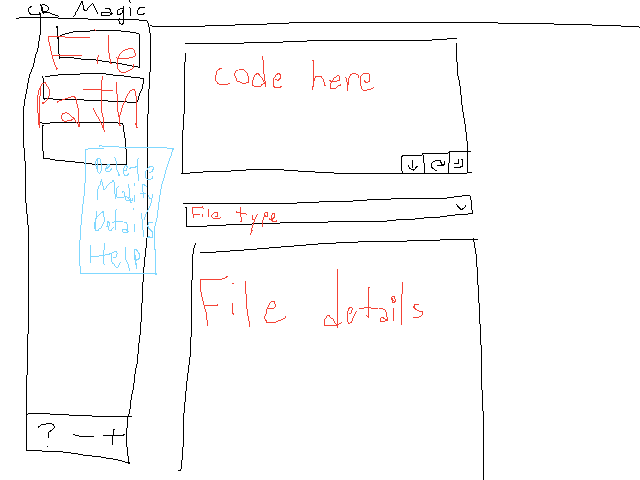 CR Magic
File
Path
Delete
Modify
Details
Help
? - +
code here
File type
File details